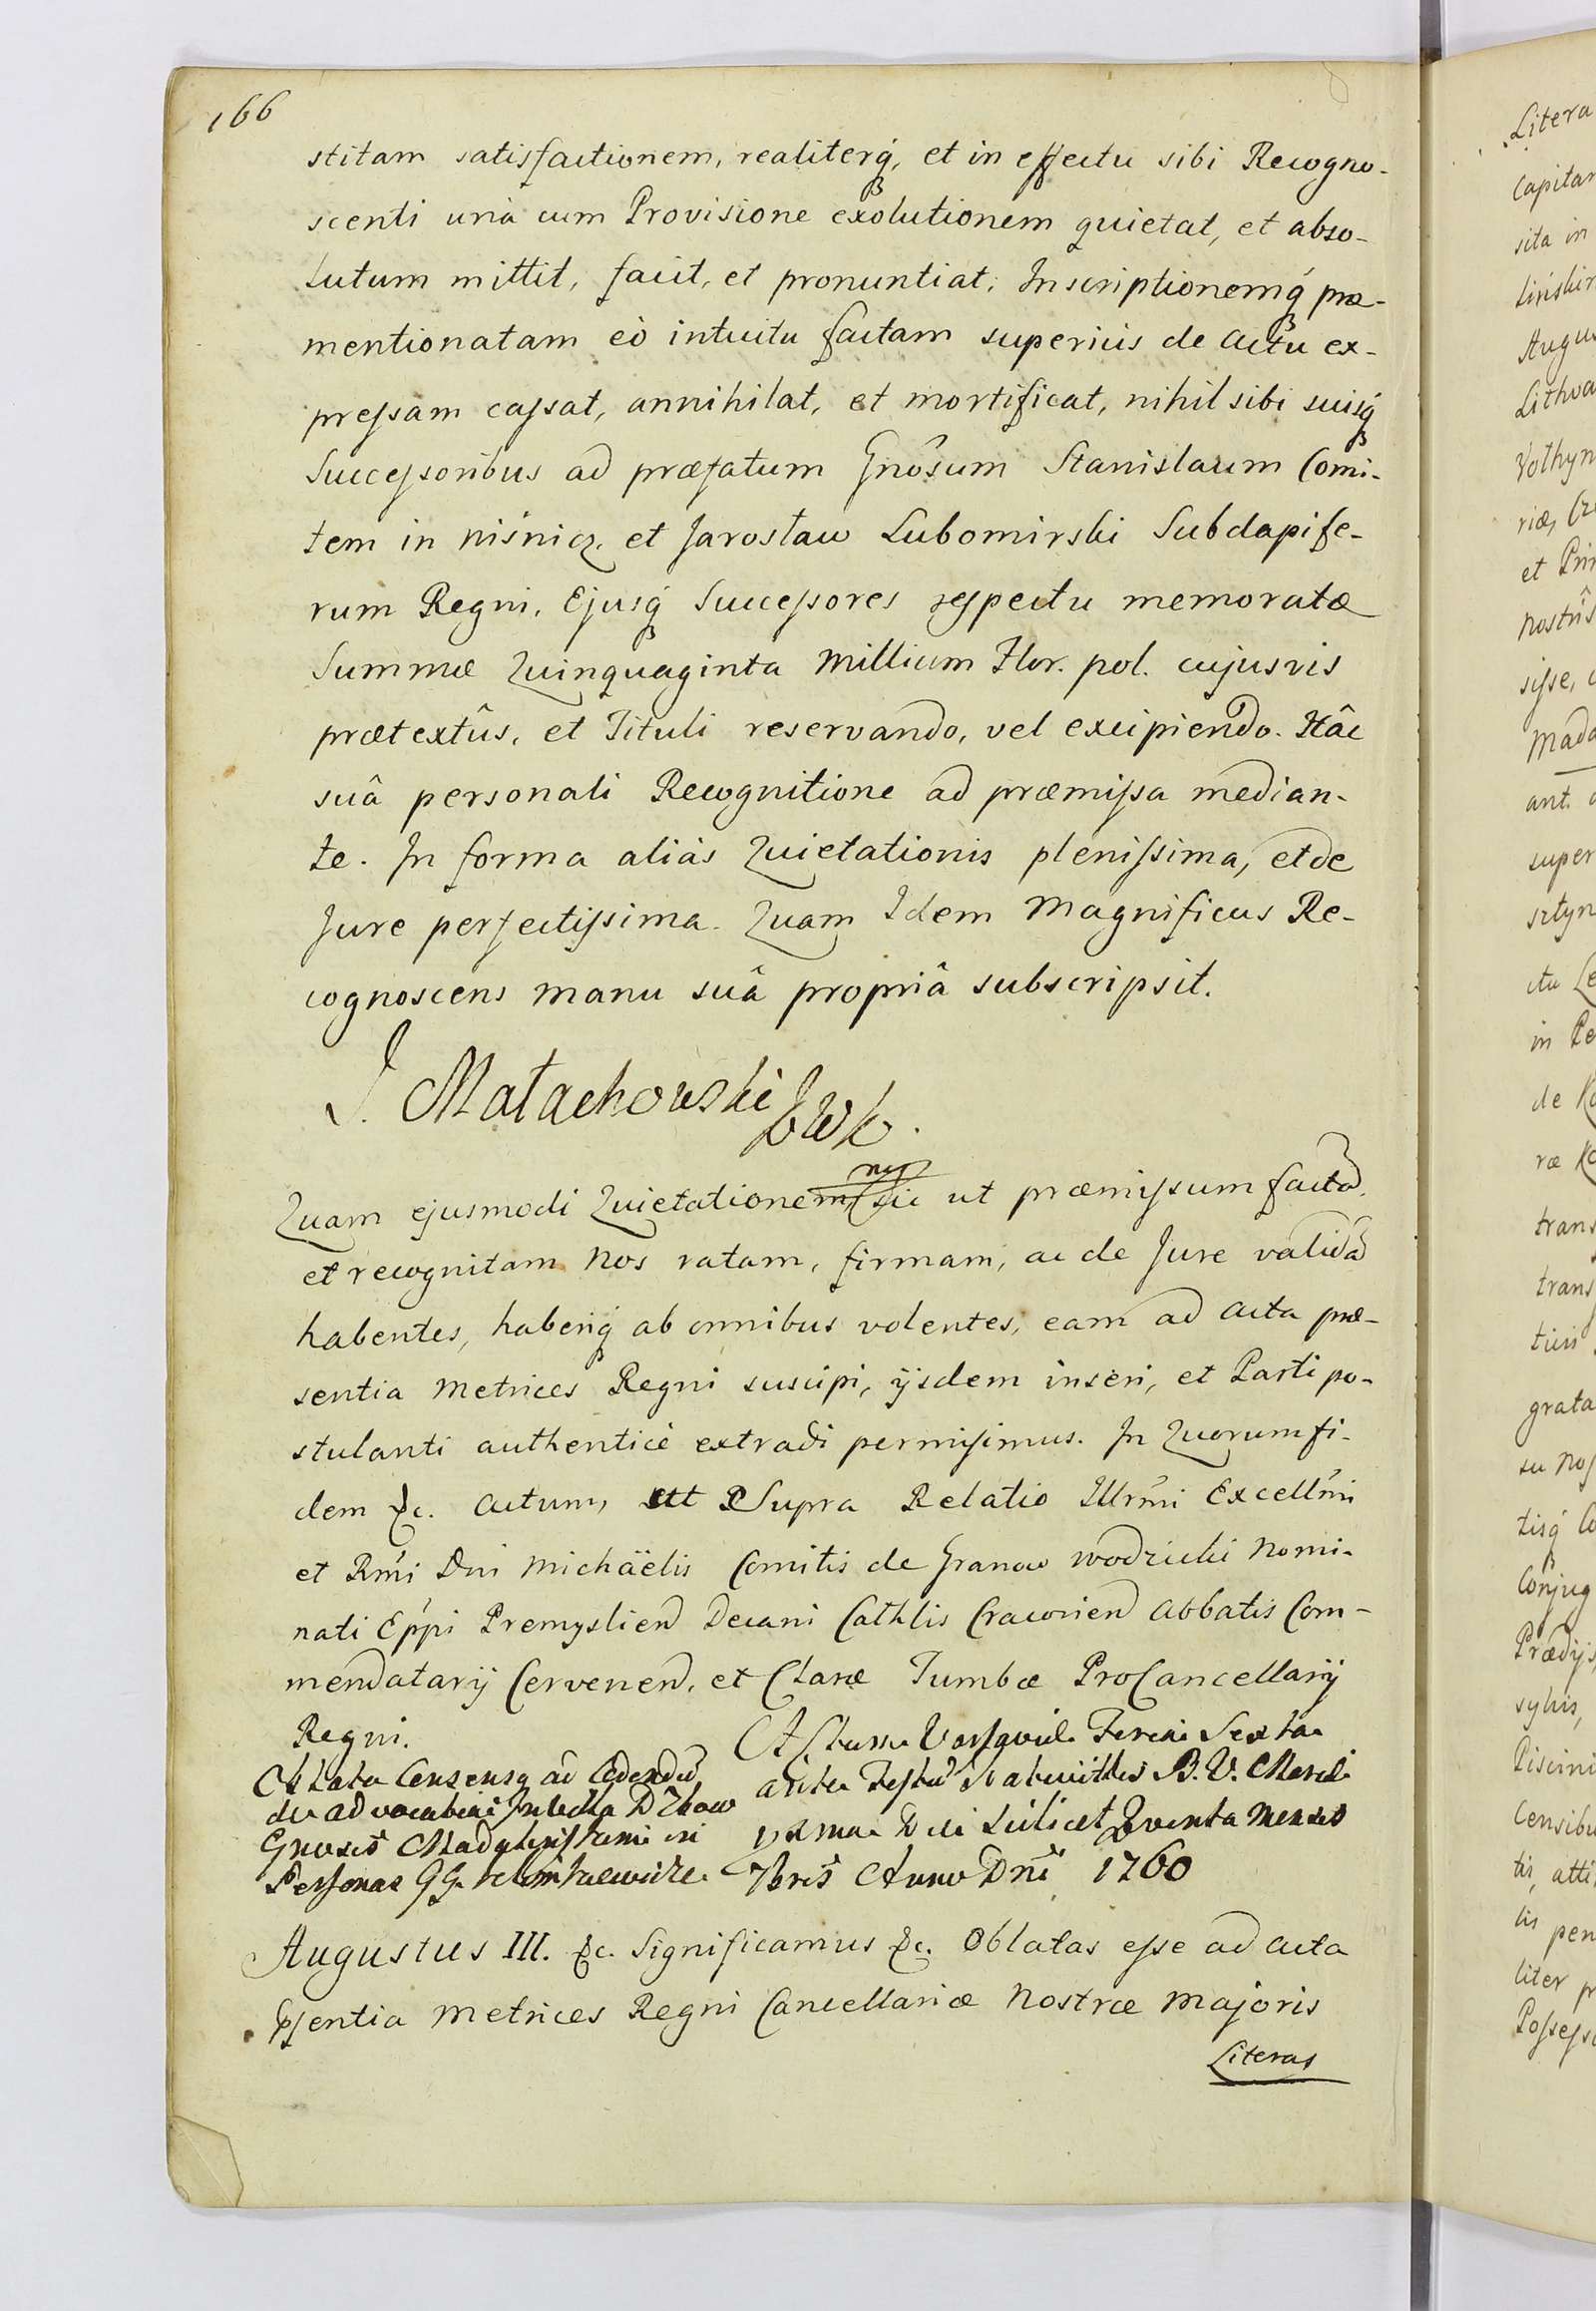 166
stitam satisfactionem, realiterq́, et in effectu sibi Recogno-
scenti unà cum Provisione exolutionem quietat, et abso-
lutum mittit, facit, et pronuntiat, Inscriptionemq́ præ-
mentionatam eò intuitu factam superiùs de actu ex-
pressam cassat, annihilat, et mortificat, nihil sibi suisq́
Successoribus ad præfatum Gnôsum Stanislaum Comi-
tem in Niśnicz, et Jarosław Lubomirski Subdapife-
rum Regni, Ejusq́ Successores respectu memoratæ
Summæ Quinquaginta Millium Flor. pol. cujusvis
prætextûs, et Tituli reservando, vel excipiendo. Hâc
suâ personali Recognitione ad præmissa median-
te. In forma aliàs Quietationis plenissima, et de
Jure perfectissima. Quam Idem Magnificus Re-
cognoscens manu suâ propriâ subscripsit.
J. Małachowski KWK.
Quam ejusmodi Quietationem sic ut præmissum factã
et recognitam Nos ratam, firmam, ac de Jure validã
habentes, haberiq́ ab omnibus volentes, eam ad Acta præ-
sentia Metrices Regni suscipi, ijsdem inseri, et Parti po-
stulanti authenticè extradi permisimus. In Quorum fi-
dem &c. Actum, ut Supra Relatio Illrm̃i Excellm̃i
et Rm̃i Dni Michäelis Comitis de Granow Wodzicki Nomi-
nati Epp̃i Premyslien̄ Decani Cathlis Cracovien̄ Abbatis Com-
mendatarij Cervenen̄, et Claræ Tumbæ ProCancellarij
Regni.
Oblata Consensq ad Cedendũ
de advocatiæ
Gnosis Magdalenis in
Personas GG.
Actum Varsaviæ Feria Sexta
ante Festũ Nativitatis B. V. Mariæ
Die scilicet Quinta Mensis
7bris Anno Dni 1760
Augustus III. &c. Significamus &c. Oblatas esse ad Acta
p̃sentia Metrices Regni Cancellariæ Nostræ Majoris
Literas
Litera
Capitan
sita in
Augus
Lithva
Volhyn
riæ,
et Prin
nostris
sisse,
Mada
ant.
super
sztyn
ctu
in
de
ræ
trans
trans
turi
grata
su
tisq́
Conjug
Prædijs
sylvis,
Piscini
Censibu
tis, atti
lis pen
liter
Possess